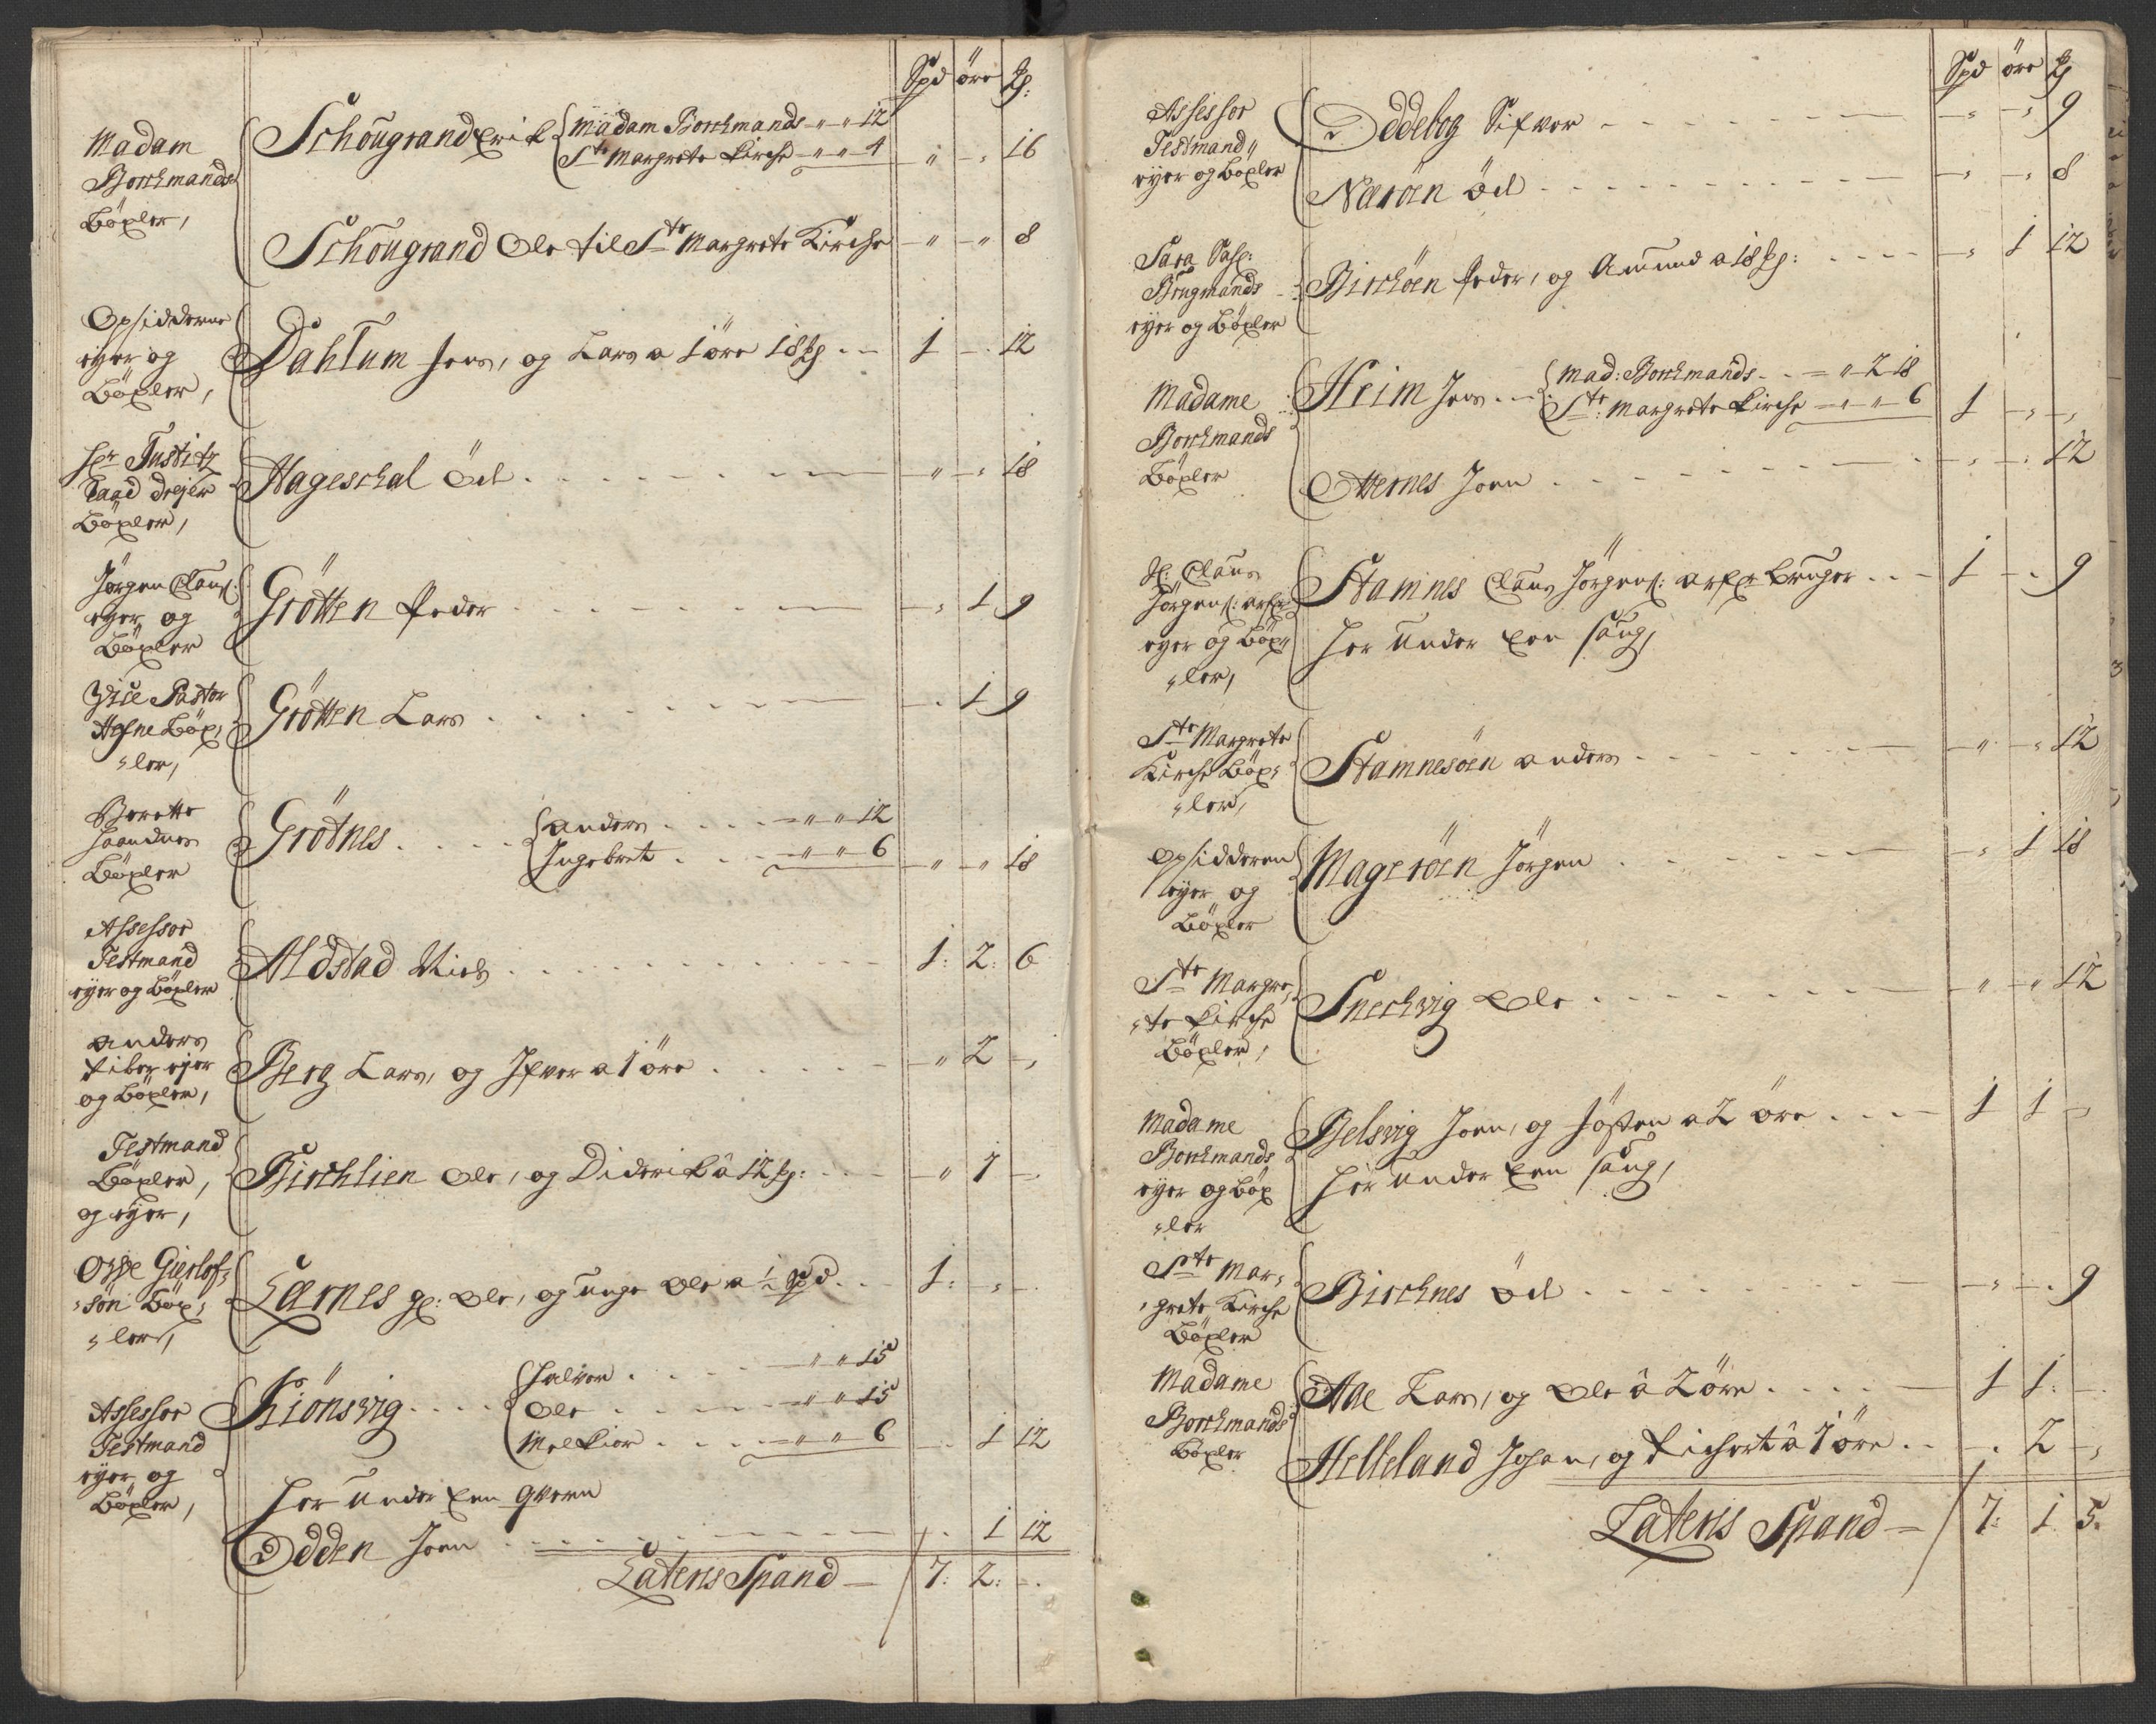 Spd öre ℔:
Madam
Borchmands
Böxler,
Schougrand Erik {Madam Borchmands - " " 12
Ste Margrete Kirche - " " 4 - " - " 16
Schougrand Ole til Ste Margrete Kirche - " - " 8
Opsidderne
eyer og
Böxler,
Dahlum Jens, og Lars a 1 öre 18 ℔ . . 1 - . 12
Hr Justitz
Raad Drejer
Böxler,
Hageschal Öd . . . . . - " - " 18
Jörgen Claus:
eyer og
Böxler
Grötten Peder . . . . - " 1 9
Vice Pastor
Hofne Böx,
"ler,
Grötten Lars . . . . . - . 1 9
Berette
Böxler
Grötnes . . . . {Anders . . . . - " " 12
Ingebret . . . - " " 6 - " - " 18
Assessor
Testmand
eyer og Böxler
Aldstad Niels . . . . . . . . 1: 2: 6
Anders
Fiber eyer
og Böxler,
Berg Lars, og Ifver a 1 öre . . . . . - " 2 -,
Testmand
Böxler,
og eyer,
Birchlien Ole, og Diderik â 12 ℔: . . . - " 1 -
Ovse Gierlof,
"sön Böx,
"ler,
Larnes gl: Ole, og unge Ole a ½ spd . . . 1: - " - .
Assessor
Testmand
eyer og
Böxler,
Kiönsvig . . . . {Halvor . . . . - " " 15
Ole . . . . - " " 15
Melkior . . . . - " " 6 - . 1 12
Her under een Qvern
Odden Joen . . . . . . 1 12
Lateris Spand - 7: 2: - .
Spd öre ℔
Assessor
Testmand"
eyer og Böxler
Oddebog Sifver . . . . . . . - " - " 9
Naröen öd . . . . . . . . - " - " 8
Sara Sal:
Brugmands
eyer og Böxler
Birchöen Peder, og Amund a 18 ℔: . . . . - " 1 12
Madame
Borchmands
Böxler
Heim Jens . . {Mad: Borchmands . . - " 2 18
Ste: Margrete Kirche - " " 6 1 - " - "
Atternes Joen . . . . . . . - " - : 12
Sl: Claus
Jörgens: arfr
eyer og Böx,
"ler,
Stamnes Claus Jörgens: arfr bruger . . . 1 - . 9
Her under een saug,
Ste Margrete
Kirche Böx,
"ler,
Stamnesöen Anders . . . . . . - " - " 12
Opsidderen
eyer og
Böxler
Mageröen Jörgen . . . . . . - " 1 18
Ste Margre,
"te Kirche
Böxler,
Snechvig Ole . . . . . . . - " - " 12
Madame
Borchmands
eyer og Böx
"ler
Belsvig Joen, og Jösten a 2 öre . . . . 1 1 -
Her under een saug,
Ste Mar,
"grete Kirche
Böxler
Birchnes Öd . . . . . . . . - " - . 9
Madame
Borchmands
Böxler
Aae Lars, og Ole â 2 öre . . . . . 1 1: - .
Helleland Johan, og Richert â 1 öre . . - . 2 -,
Lateris Spand - 7: 1 5.